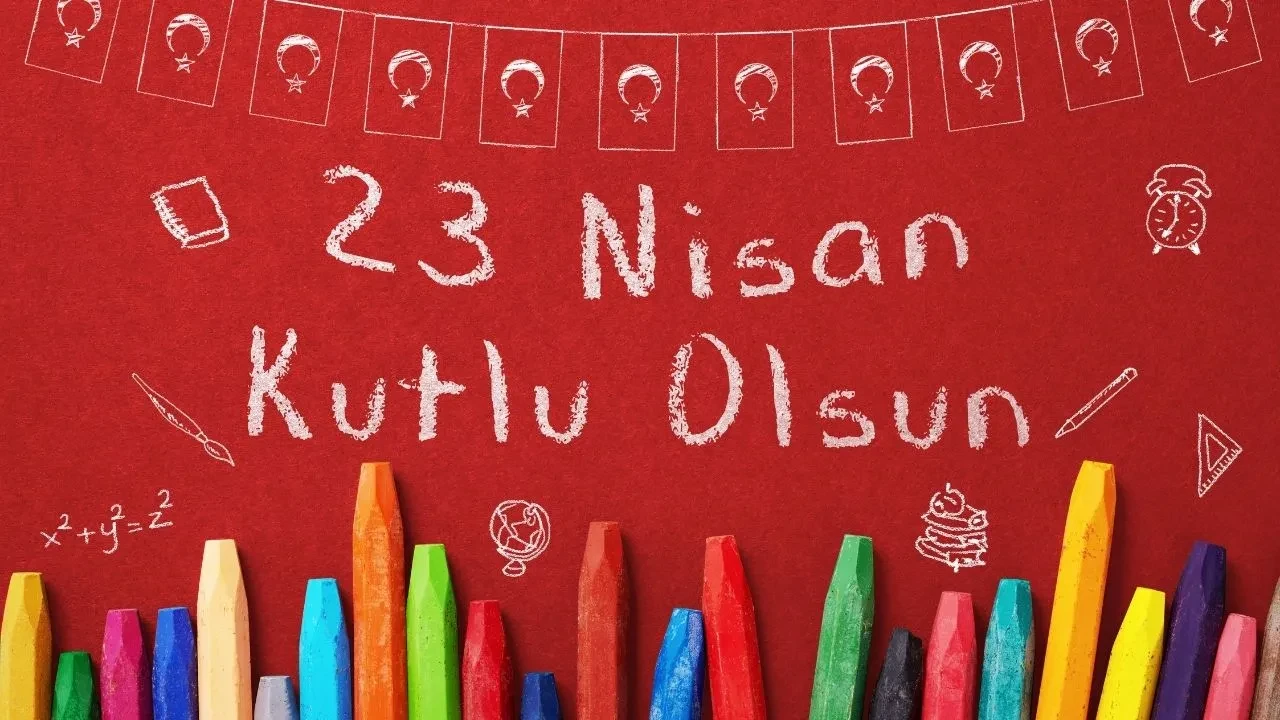 23 Nisan
Kutlu Olsun
x² + y² = z²